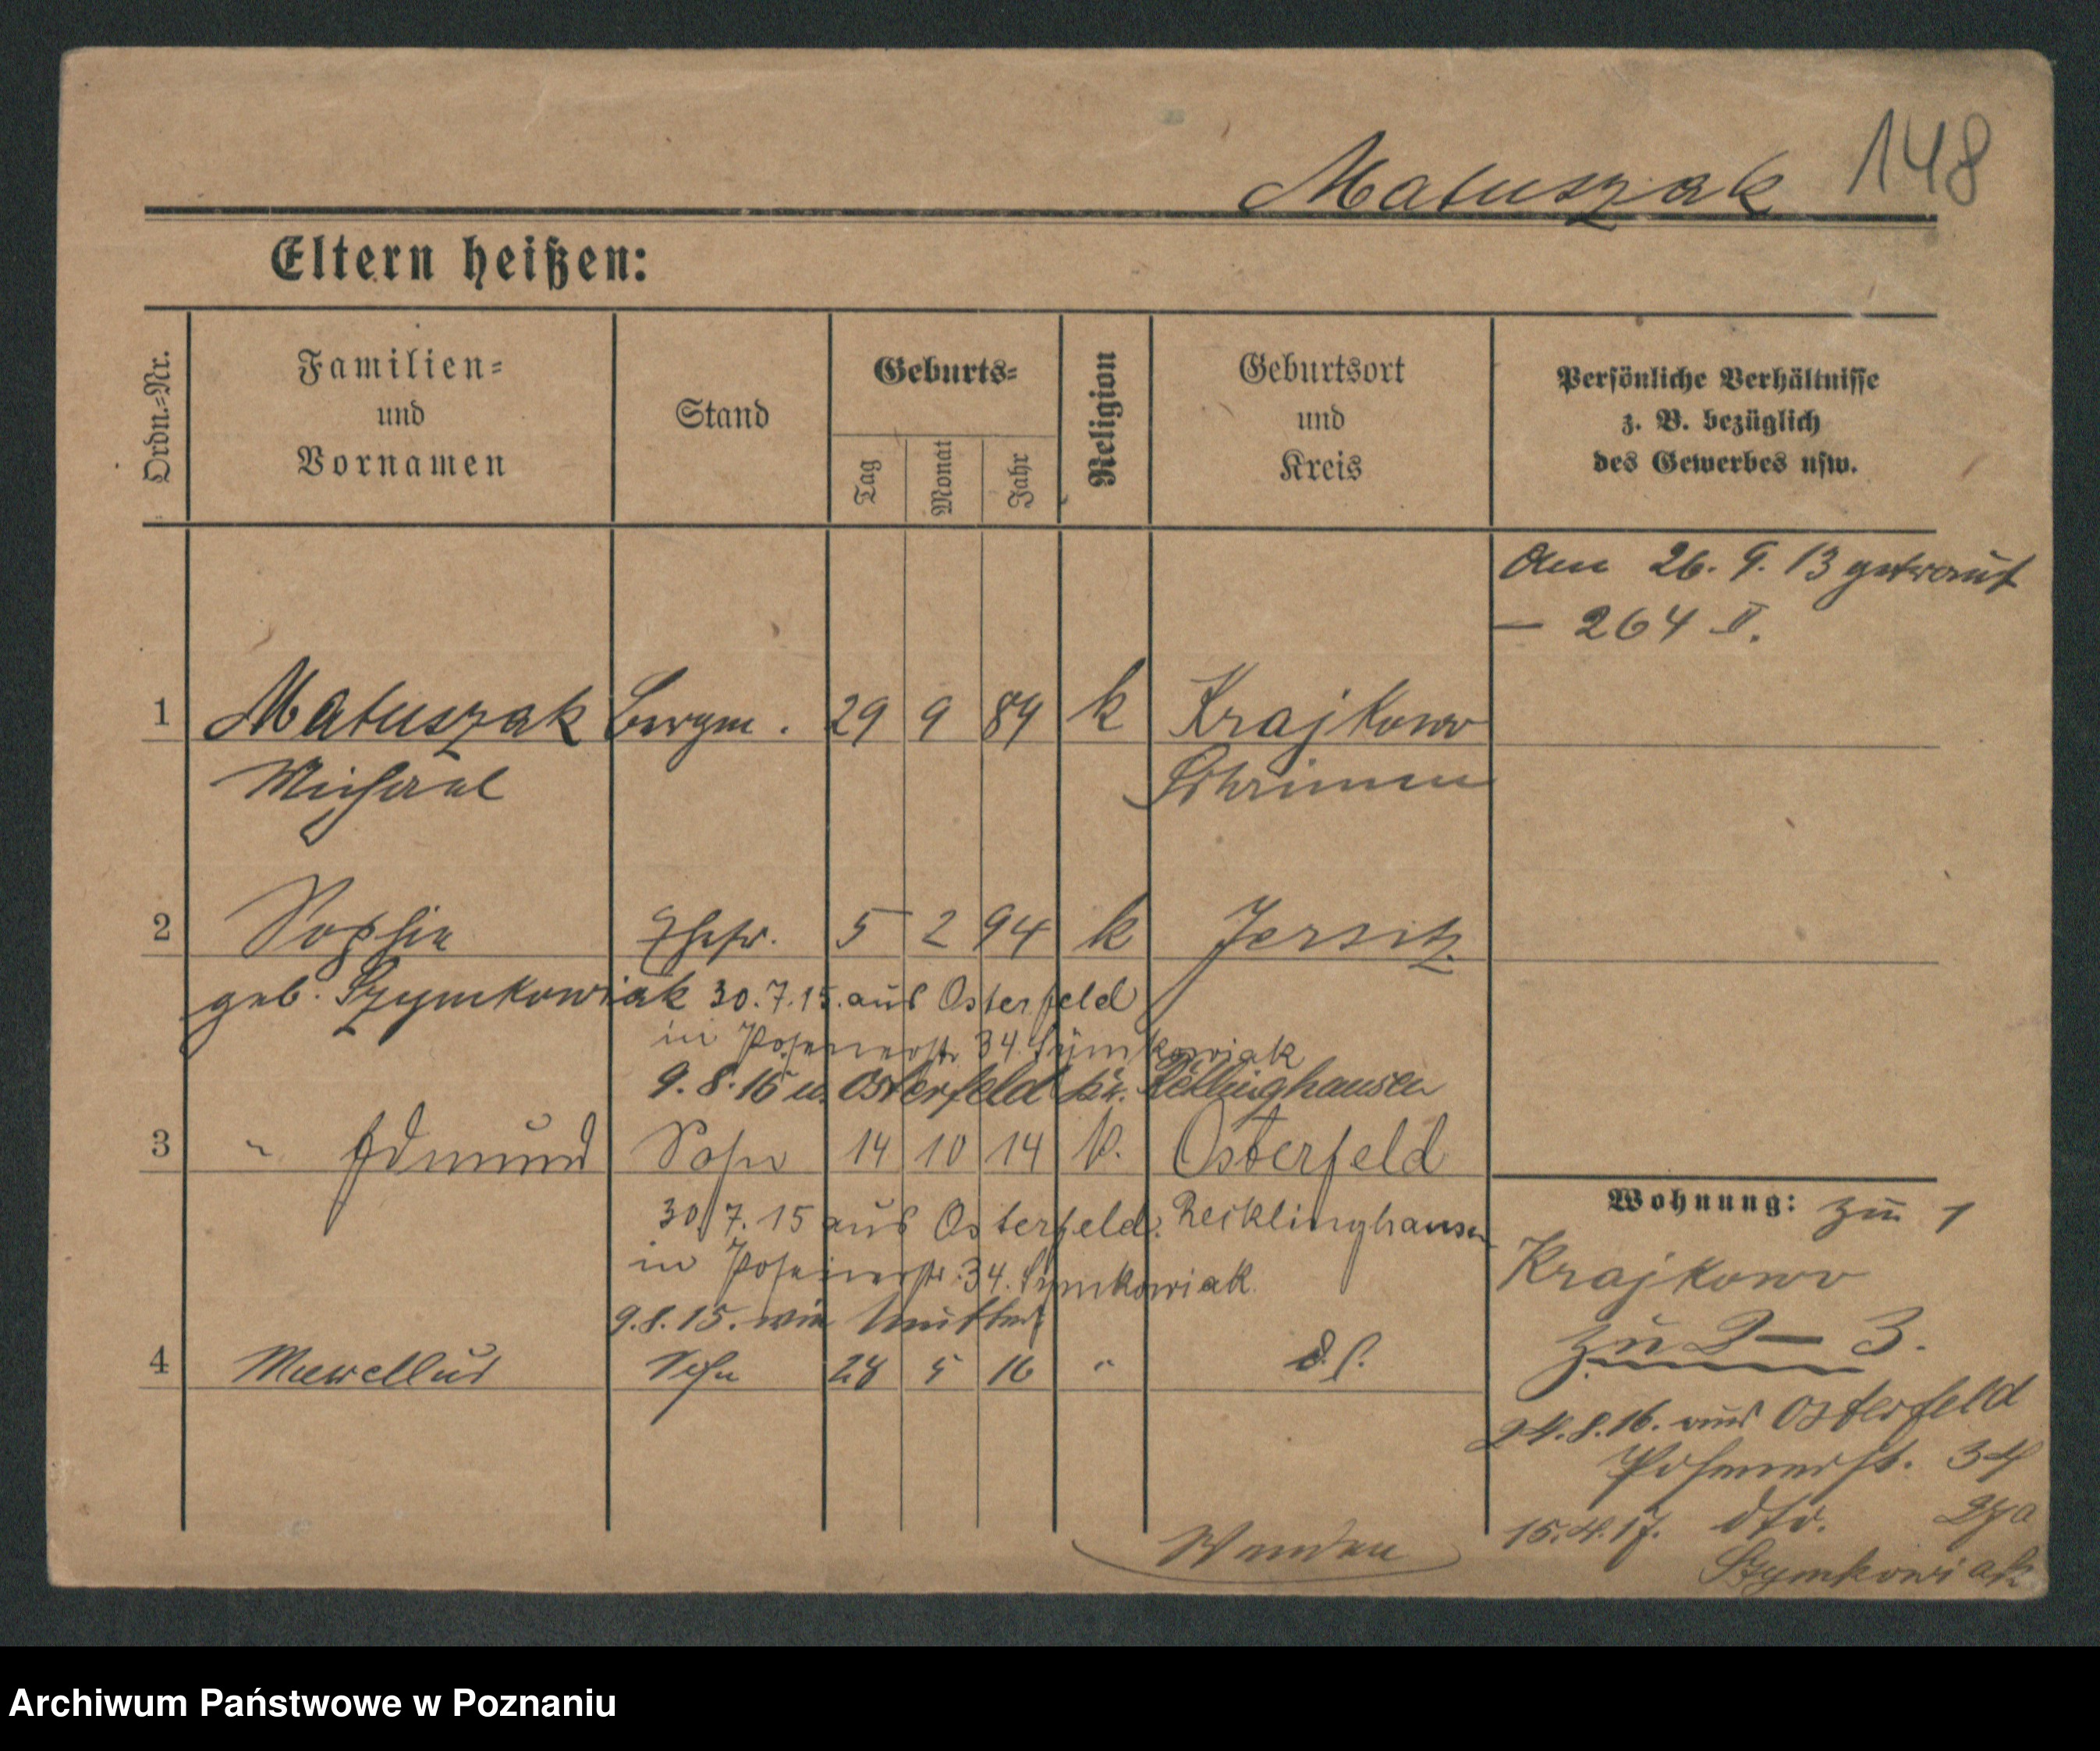 Matuszak 148
Eltern heißen:
Ordn.-Nr.
Familien-
und
Vornamen
Stand
Geburts-
Tag
Monat
Jahr
Religion
Geburtsort
und
Kreis
Persönliche Verhältnisse
z. B. bezüglich
des Gewerbes usw.
Am 26. 9. 13 getraut
— 264 II.
1 Matuszak Bergm. 29 9 89 k Krajkowo
Michael Schrimm
2 Sophie Ehefr. 5 2 94 k Jersitz
geb. Szymkowiak 30.7.15. aus Osterfeld
in Posenerstr 34 Symkowiak
9.8.15 n. Osterfeld Kr. Recklinghausen
3 " Edmund Sohn 14 10 14 k. Osterfeld
30.7.15 aus Osterfeld. Recklinghausen
in Posenerstr. 34. Symkowiak
9.8.15. wie Mutter
4 Sohn 28 5 16 " d.
Wohnung: zu 1
Krajkowo
zu 2 — 3.
24.8.16. aus Osterfeld
Posenerst. 34
15.4.17. dto.
Szymkowiak
Wenden
Archiwum Państwowe w Poznaniu